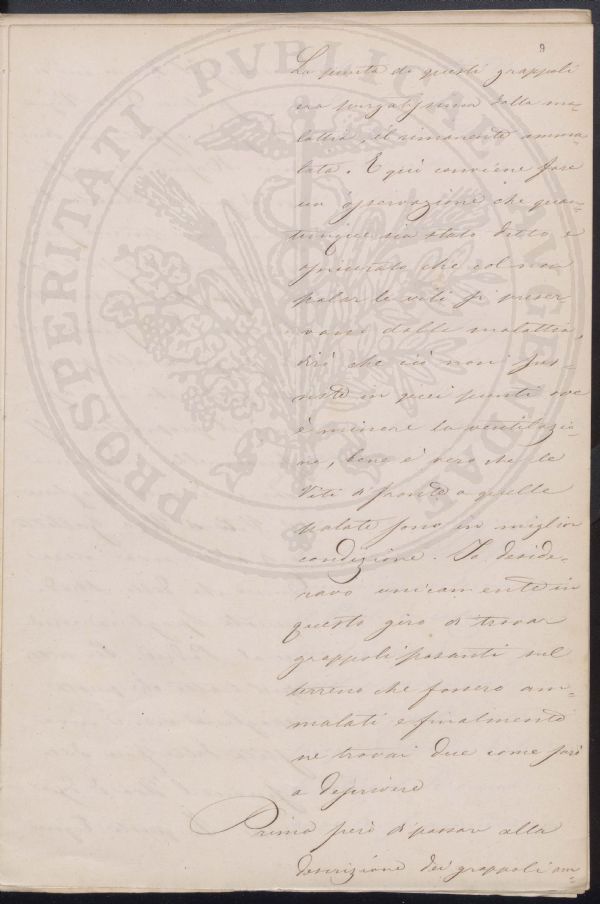 9
La punta di questi grappoli
era purgatissima dalla ma-
lattia, il rimanente amma-
lata. E quì conviene fare
un osservazione che quan-
tunque sia stato detto e
assicurato che col non
palar le viti si preser
vano dalle malattia,
dirò che ciò non sus-
siste in quei punti ove
è minore la ventilazio-
ne, bene è vero che le
Viti di fronte a quelle
palate sono in miglior
condizione. Io deside-
ravo unicamente in
questo giro di trovar
grappoli posanti sul
terreno che fossero am-
malati e finalmente
ne trovai due come farò
a descrivere
Prima però di passar alla
descrizione dei grappoli am-
PROSPERITATI PVBLICAE AVGENDAE